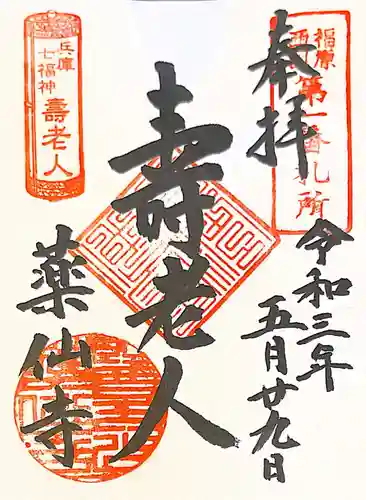 奉拝
福原
西国
第一番札所
令和三年
五月廿九日
壽老人
兵庫
七福神
壽老人
薬仙寺